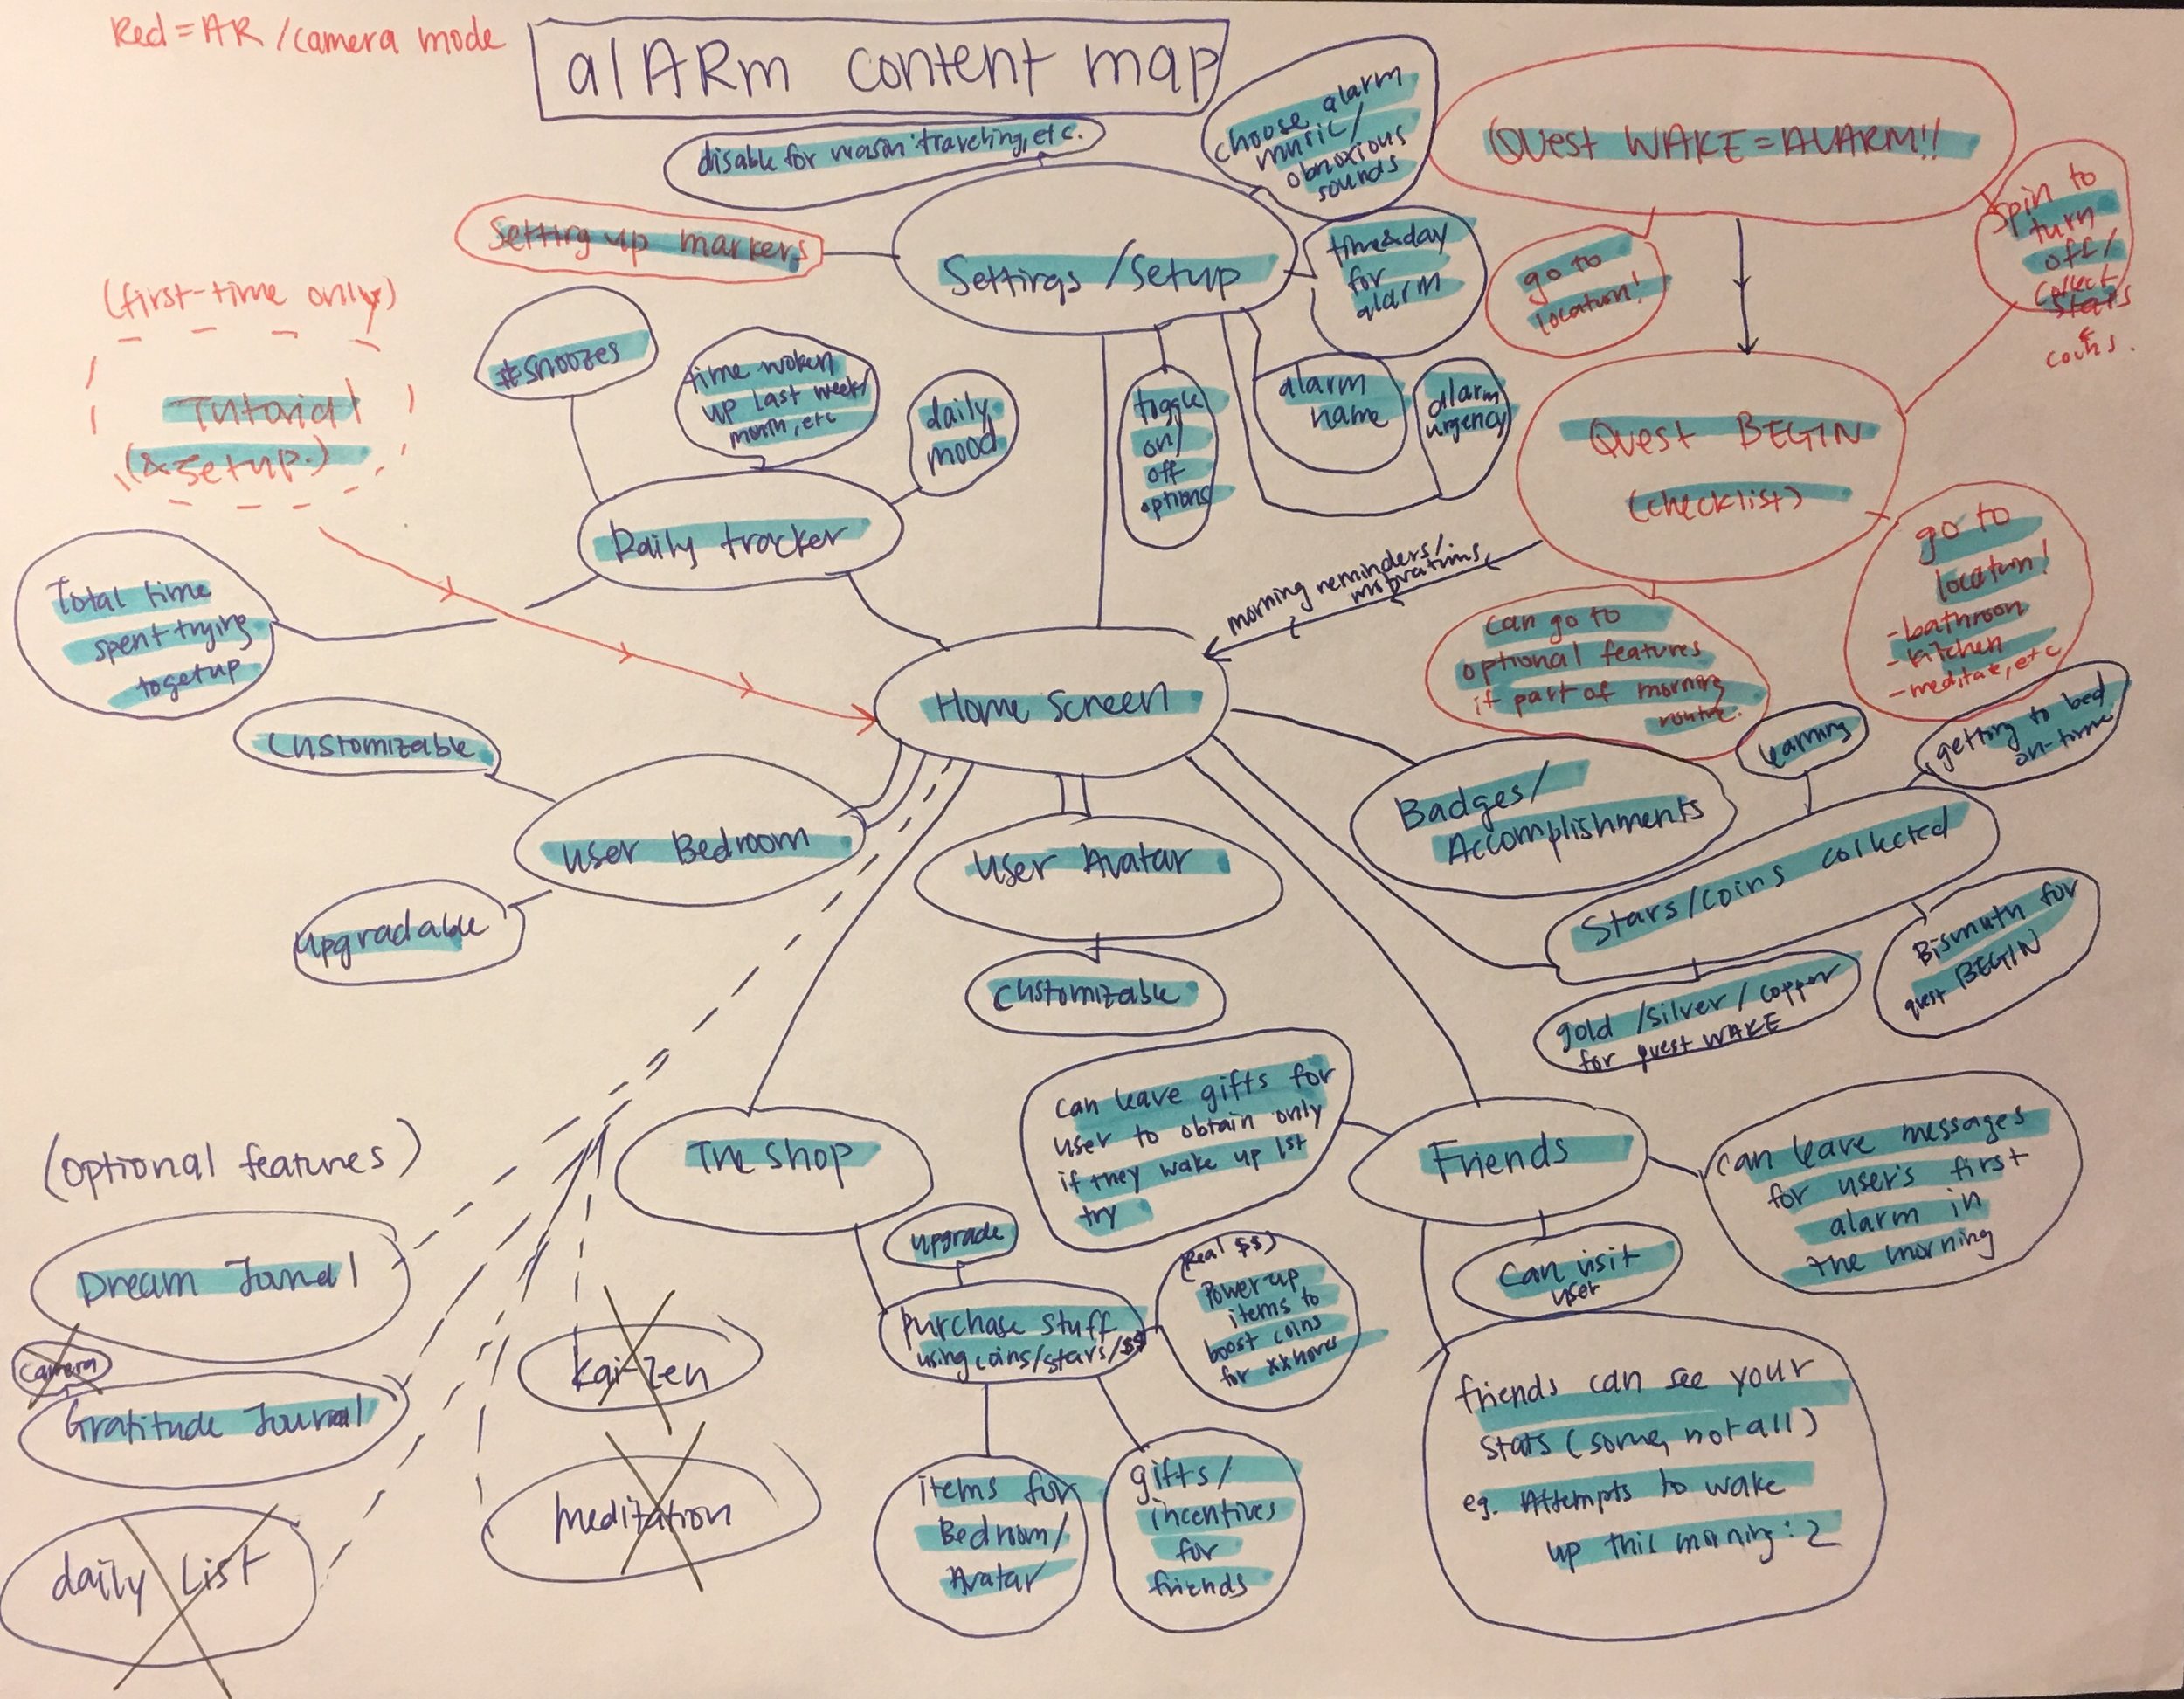 Red = AR / camera mode
alARm content map
disable for reason traveling, etc.
choose alarm
music/
obnoxious
sounds
Quest WAKE = ALARM!!
Spin to
turn
off/
collect
stars
&
coins.
Setting up markers
Settings / Setup
time & day
for
alarm
go to
location!
(first-time only)
Tutorial
(& setup.)
# snoozes
time woken
up last week/
month, etc
daily
mood
toggle
on/
off
options
alarm
name
alarm
urgency
Quest BEGIN
(checklist)
Daily tracker
go to
location!
- bathroom
- kitchen
- meditate, etc
Total time
spent trying
to get up
morning reminders/
motivations
can go to
optional features
if part of morning
routine.
Home Screen
customizable
learning
getting to bed
on-time
User Bedroom
User Avatar
Badges/
Accomplishments
Stars/coins collected
upgradable
customizable
gold / silver / copper
for quest WAKE
Bismuth for
quest BEGIN
(optional features)
The Shop
can leave gifts for
user to obtain only
if they wake up 1st
try
Friends
can leave messages
for user's first
alarm in
the morning
Dream Journal
upgrade
(Real $$)
Power up
items to
boost coins
for xx hours
Can visit
user
camera
Gratitude Journal
kai-zen
purchase stuff
using coins/stars/$$
friends can see your
stats (some, not all)
eg. Attempts to wake
up this morning: 2
daily List
meditation
items for
Bedroom/
Avatar
gifts/
incentives
for
friends